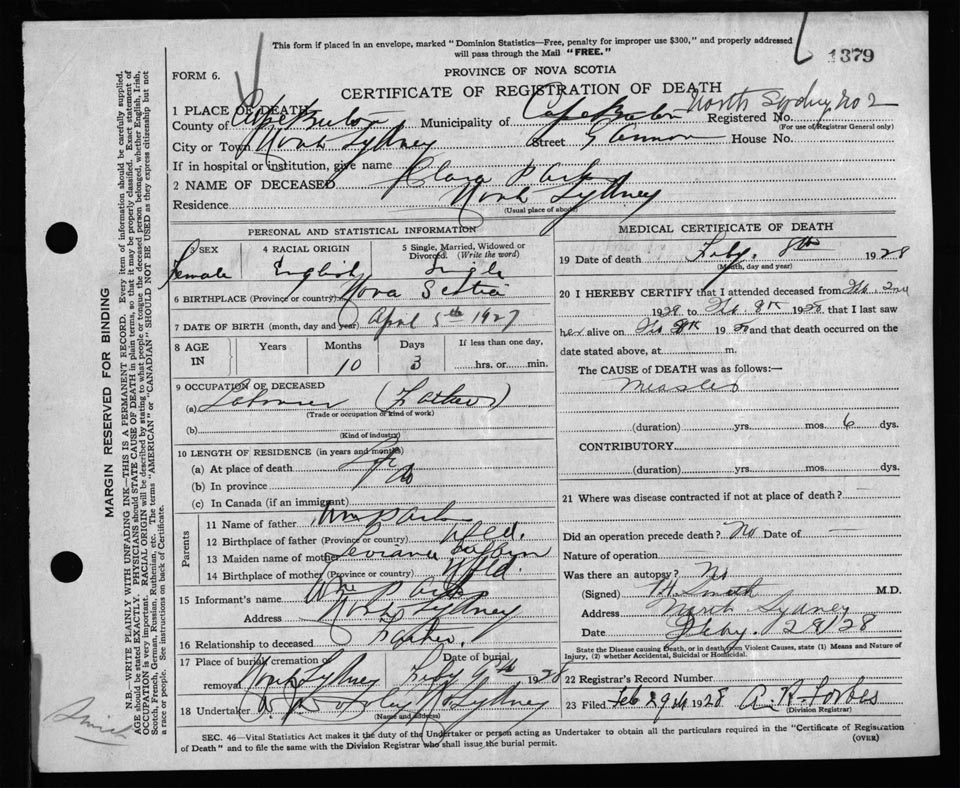 This form if placed in an envelope, marked "Dominion Statistics—Free, penalty for improper use $300," and properly addressed
will pass through the Mail "FREE."
1379
FORM 6.
PROVINCE OF NOVA SCOTIA
CERTIFICATE OF REGISTRATION OF DEATH
1 PLACE OF DEATH
North Sydney No 2
County of Cape Breton Municipality of Cape Breton Registered No.
(For use of Registrar General only)
City or Town North Sydney Street Gannon House No.
If in hospital or institution, give name
2 NAME OF DECEASED Clara Park
Residence North Sydney
(Usual place of abode)
PERSONAL AND STATISTICAL INFORMATION
3 SEX 4 RACIAL ORIGIN 5 Single, Married, Widowed or Divorced. (Write the word)
Female English Single
6 BIRTHPLACE (Province or country) Nova Scotia
7 DATE OF BIRTH (month, day and year) April 5th 1927
8 AGE IN Years Months Days If less than one day,
10 3 hrs. or min.
9 OCCUPATION OF DECEASED
(a) Labourer (Father)
(Trade or occupation or kind of work)
(b)
(Kind of industry)
10 LENGTH OF RESIDENCE (in years and months)
(a) At place of death Life
(b) In province Do
(c) In Canada (if an immigrant)
Parents
11 Name of father Wm Park
12 Birthplace of father (Province or country) Nfld.
13 Maiden name of mother
14 Birthplace of mother (Province or country) Nfld.
15 Informant's name Wm Park
Address North Sydney
16 Relationship to deceased Father.
17 Place of burial, cremation or removal North Sydney Date of burial Feby 9th 1928
18 Undertaker N. Sydney
(Name and address)
MEDICAL CERTIFICATE OF DEATH
19 Date of death Feby. 8th 1928
(Month, day and year)
20 I HEREBY CERTIFY that I attended deceased from Feb. 2nd
1928 to Feb 8th 1928 that I last saw
her alive on Feb 8th 1928 and that death occurred on the
date stated above, at m.
The CAUSE of DEATH was as follows:—
Measles
(duration) yrs. mos. 6 dys.
CONTRIBUTORY
(duration) yrs. mos. dys.
21 Where was disease contracted if not at place of death?
Did an operation precede death? No Date of
Nature of operation
Was there an autopsy? No
(Signed) Smith M.D.
Address North Sydney
Date Feby. 28/28
State the Disease causing Death, or in death from Violent Causes, state (1) Means and Nature of
Injury, (2) whether Accidental, Suicidal or Homicidal.
22 Registrar's Record Number
23 Filed Feb 29th 1928 A. R. Forbes
(Division Registrar)
SEC. 46—Vital Statistics Act makes it the duty of the Undertaker or person acting as Undertaker to obtain all the particulars required in the "Certificate of Registration
of Death" and to file the same with the Division Registrar who shall issue the burial permit.
(OVER)
MARGIN RESERVED FOR BINDING
N.B.—WRITE PLAINLY WITH UNFADING INK—THIS IS A PERMANENT RECORD. Every item of information should be carefully supplied.
AGE should be stated EXACTLY. PHYSICIANS should STATE CAUSE OF DEATH in plain terms, so that it may be properly classified. Exact statement of
OCCUPATION is very important. RACIAL ORIGIN will be described by stating to what people or tongue the deceased person belonged, whether English, Irish,
Scotch, French, German, Russian, Ruthenian, etc. The terms "AMERICAN" or "CANADIAN" SHOULD NOT BE USED as they express citizenship but not
a race or people. See instructions on back of Certificate.